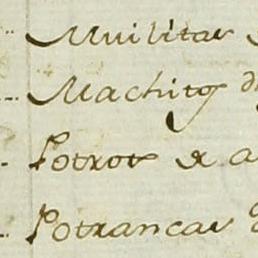 Muilitas
Machitos d
Potros de a
Potrancas d